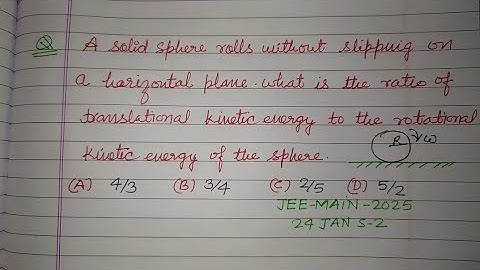 Q A solid sphere rolls without slipping on
a horizontal plane. what is the ratio of
translational kinetic energy to the rotational
kinetic energy of the sphere.
R ω
(A) 4/3 (B) 3/4 (C) 2/5 (D) 5/2
JEE-MAIN-2025
24 JAN S-2